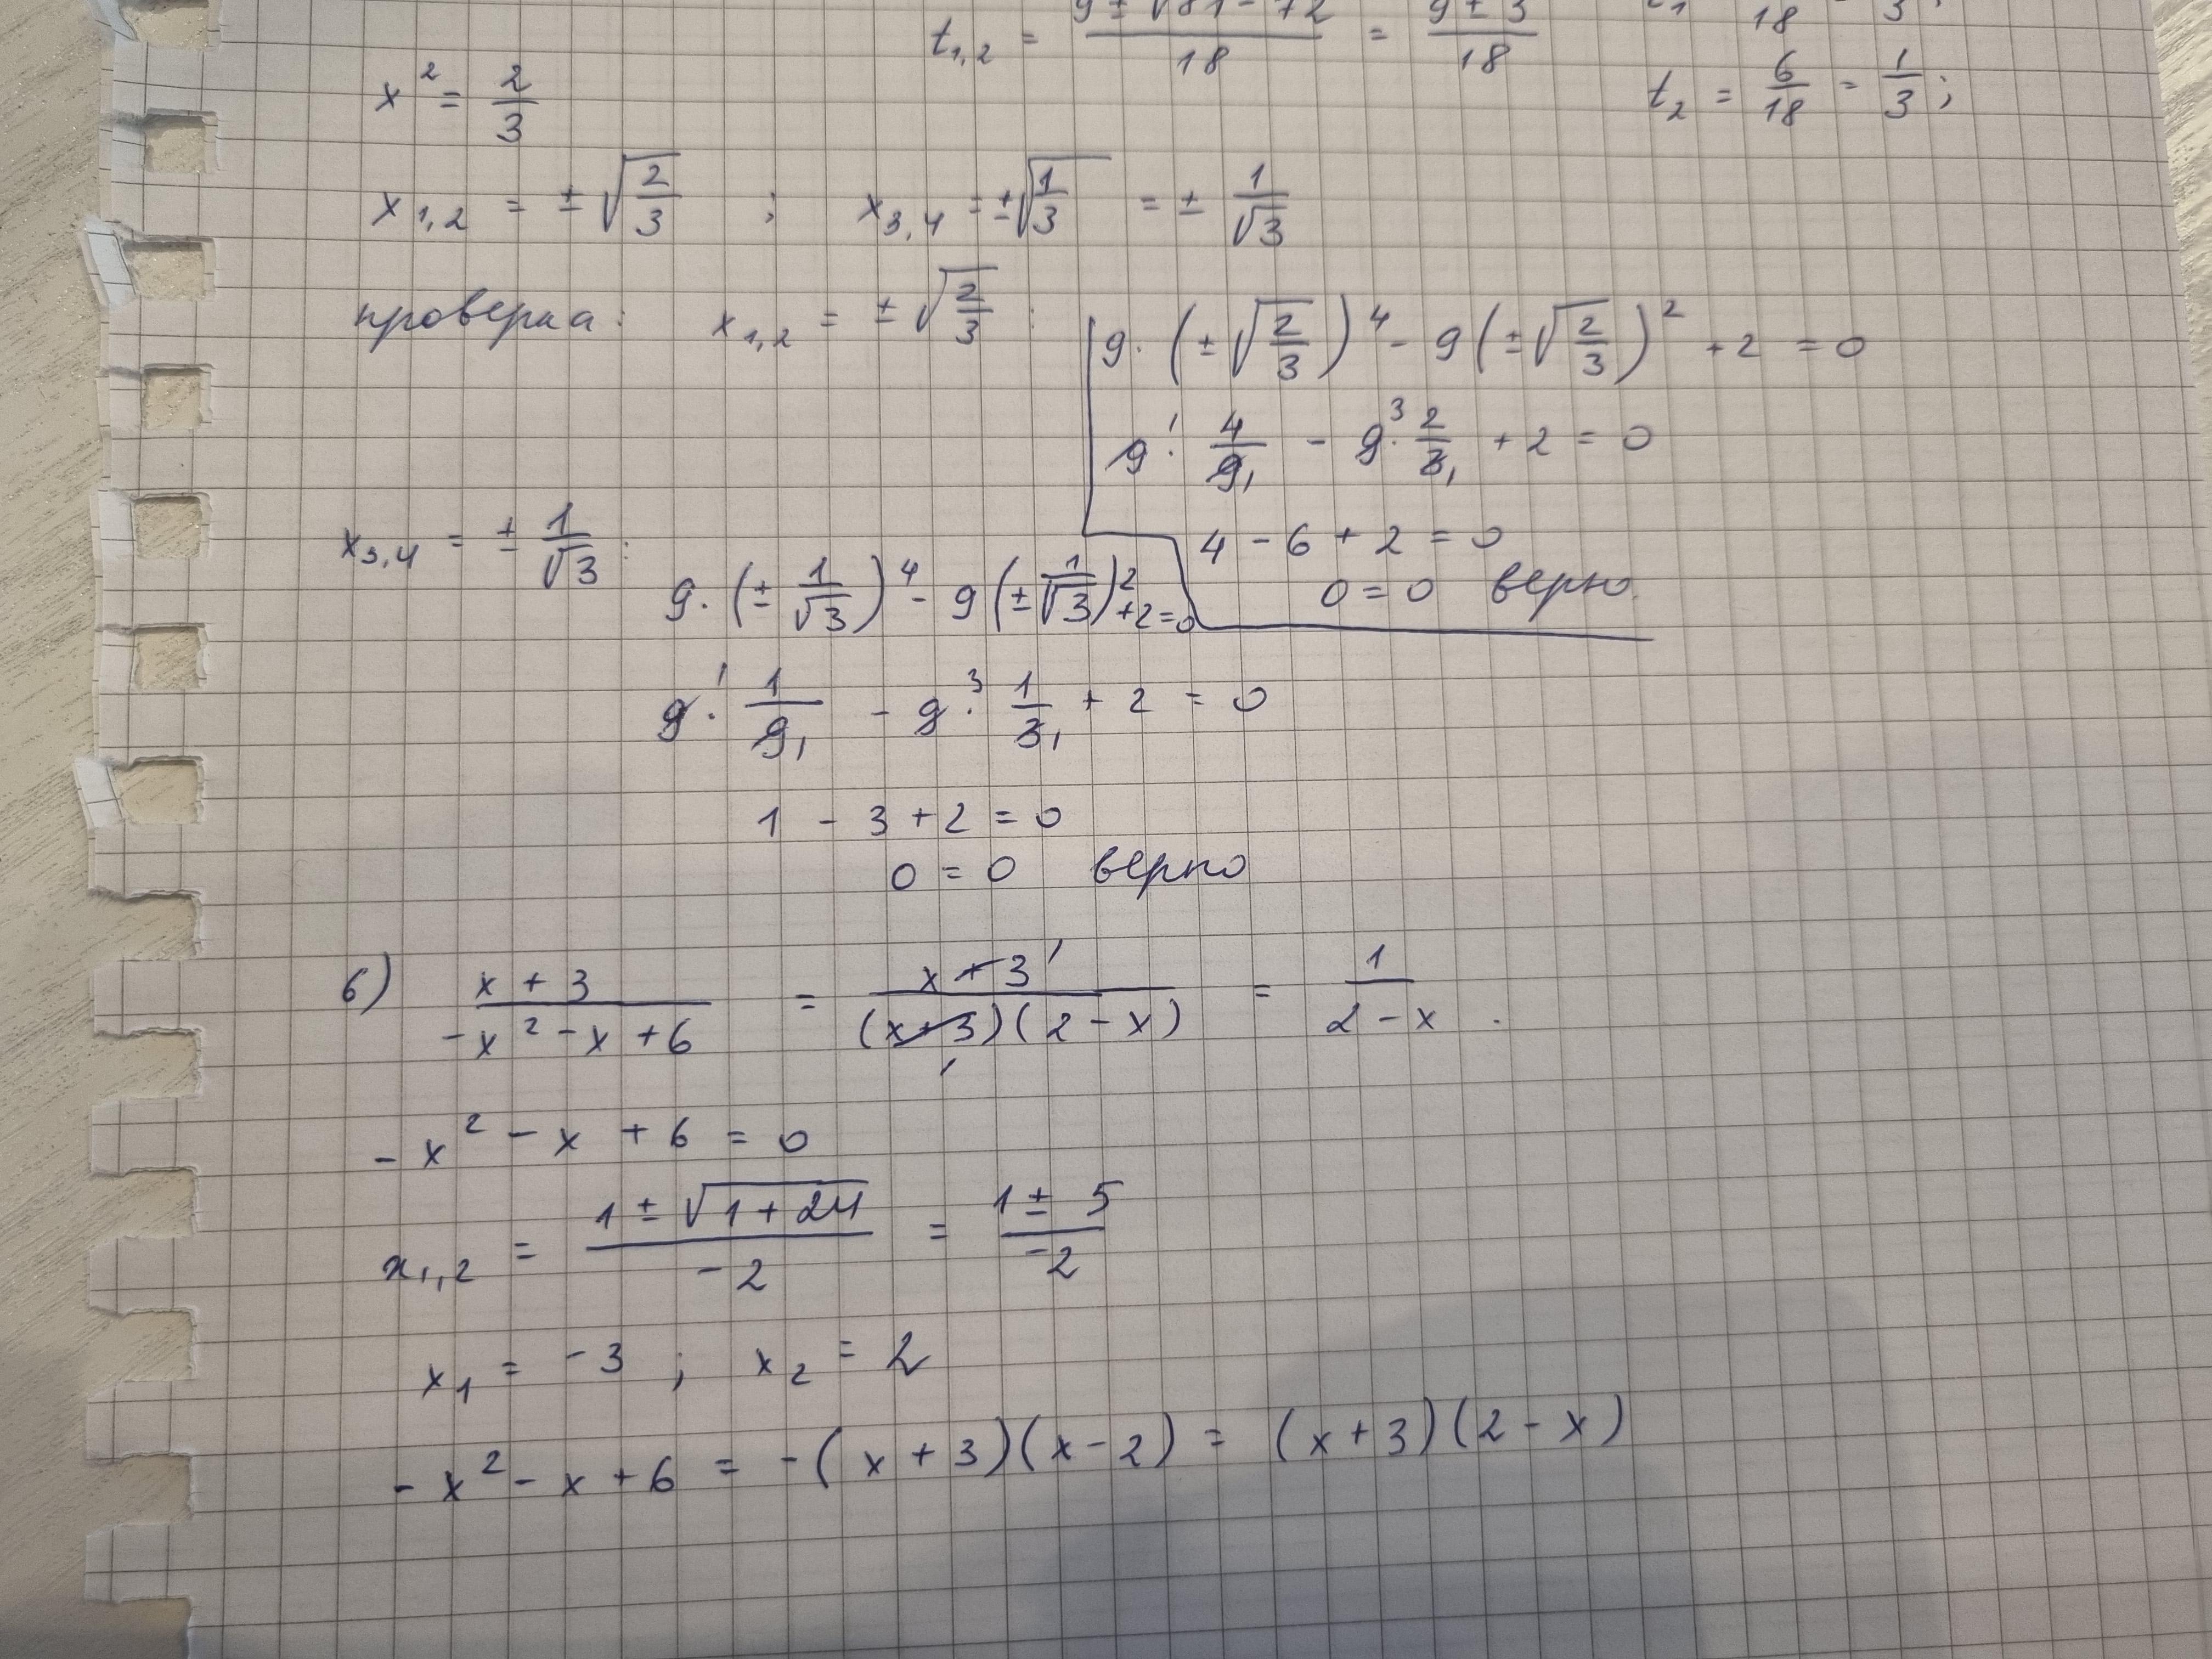 t₁,₂ = (9 ± √81 - 72)/18 = (9 ± 3)/18
x² = 2/3
t₂ = 6/18 = 1/3 ;
x₁,₂ = ± √(2/3) ; x₃,₄ = ± √(1/3) = ± 1/√3
проверка: x₁,₂ = ± √(2/3) :
9 · (± √(2/3))⁴ - 9 (± √(2/3))² + 2 = 0
9 · 4/9 - 9 · 2/3 + 2 = 0
4 - 6 + 2 = 0
0 = 0 верно.
x₃,₄ = ± 1/√3 :
9 · (± 1/√3)⁴ - 9 (± 1/√3)² + 2 = 0
9 · 1/9 - 9 · 1/3 + 2 = 0
1 - 3 + 2 = 0
0 = 0 верно
6) (x + 3)/(-x² - x + 6) = (x + 3)/((x + 3)(2 - x)) = 1/(2 - x) .
- x² - x + 6 = 0
x₁,₂ = (1 ± √(1 + 24))/(-2) = (1 ± 5)/(-2)
x₁ = -3 ; x₂ = 2
- x² - x + 6 = -(x + 3)(x - 2) = (x + 3)(2 - x)